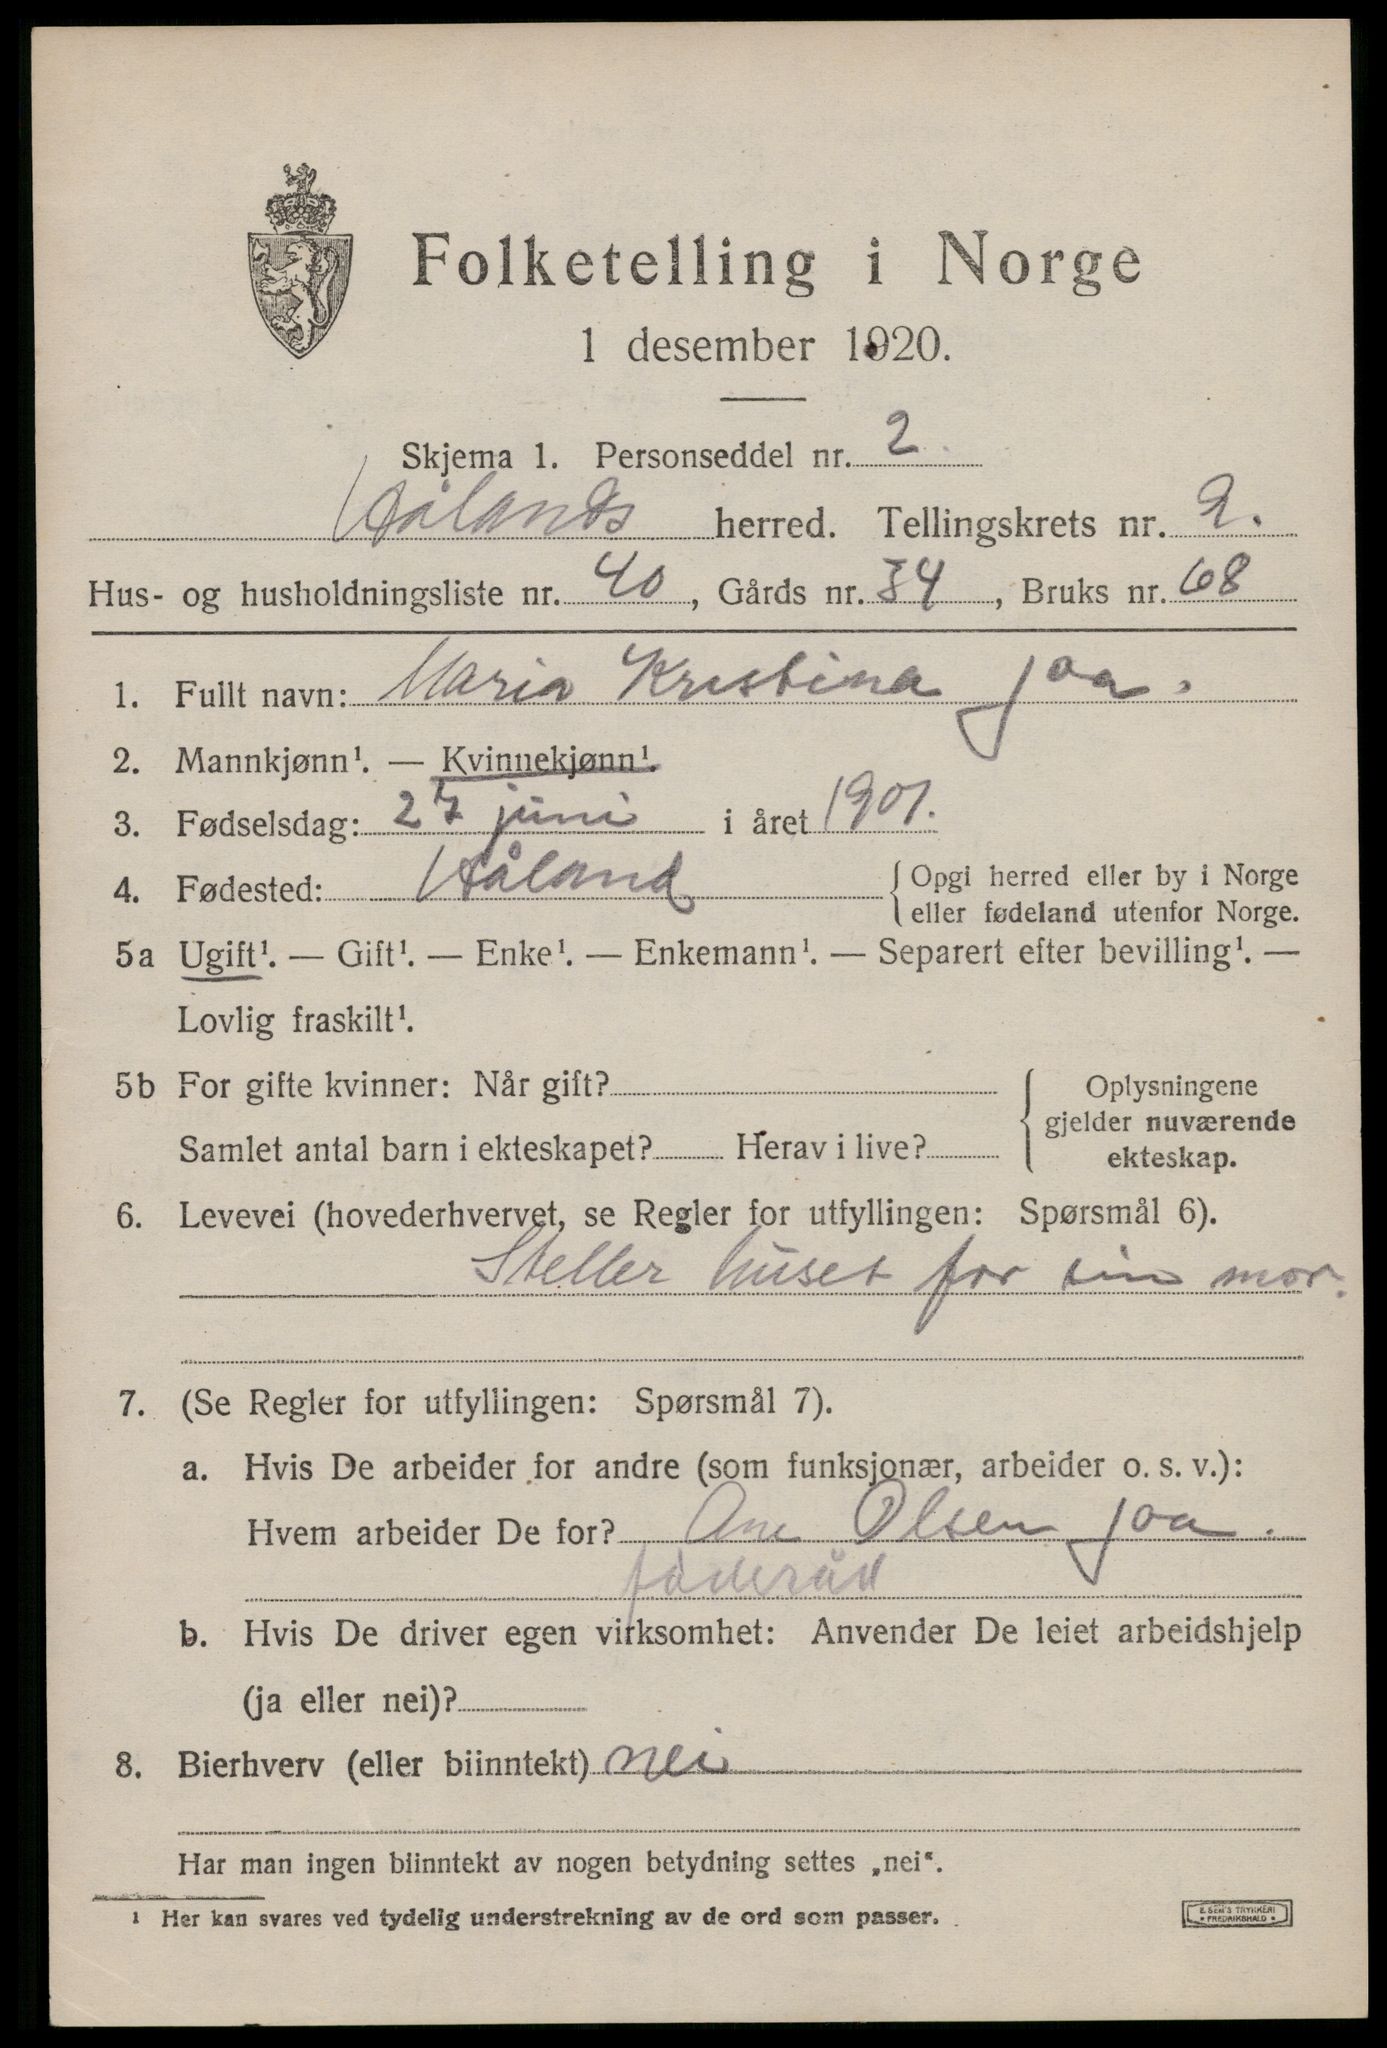 Folketelling i Norge
1 desember 1920.
Skjema 1. Personseddel nr. 2
Hålands herred. Tellingskrets nr. 2.
Hus- og husholdningsliste nr. 40, Gårds nr. 34, Bruks nr. 68
1. Fullt navn: Maria Kristina Joa.
2. Mannkjønn¹. — Kvinnekjønn¹.
3. Fødselsdag: 27 juni i året 1901.
4. Fødested: Håland { Opgi herred eller by i Norge
eller fødeland utenfor Norge.
5a Ugift¹. — Gift¹. — Enke¹. — Enkemann¹. — Separert efter bevilling¹. —
Lovlig fraskilt¹.
5b For gifte kvinner: Når gift? { Oplysningene
gjelder nuværende
Samlet antal barn i ekteskapet? Herav i live? ekteskap.
6. Levevei (hovederhvervet, se Regler for utfyllingen: Spørsmål 6).
Steller huset for sin mor.
7. (Se Regler for utfyllingen: Spørsmål 7).
a. Hvis De arbeider for andre (som funksjonær, arbeider o. s. v.):
Hvem arbeider De for? Ane Olsen Joa.
føderåd
b. Hvis De driver egen virksomhet: Anvender De leiet arbeidshjelp
(ja eller nei)?
8. Bierhverv (eller biinntekt) nei
Har man ingen biinntekt av nogen betydning settes „nei“.
¹ Her kan svares ved tydelig understrekning av de ord som passer.
E. SEM'S TRYKKERI
• FREDRIKSHALD •